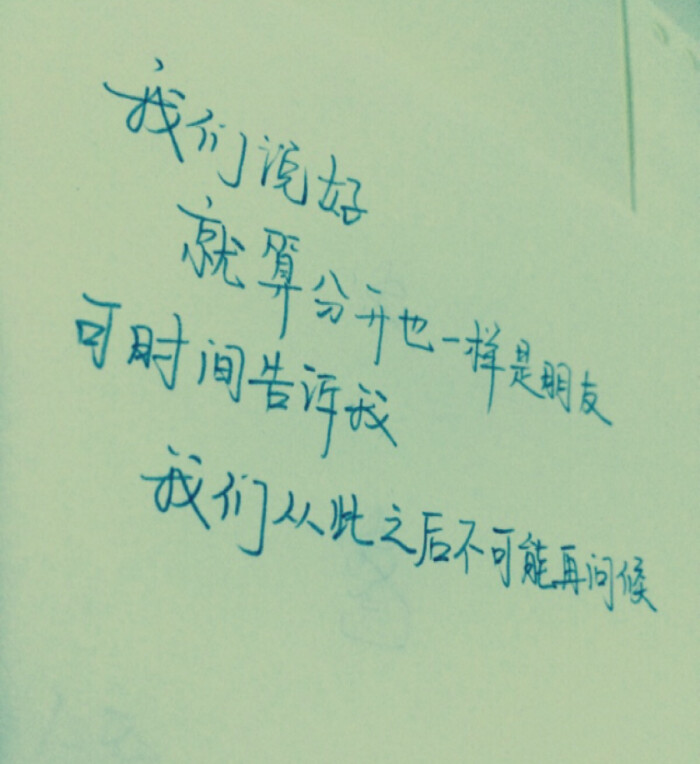 我们说好
就算分开也一样是朋友
可时间告诉我
我们从此之后不可能再问候